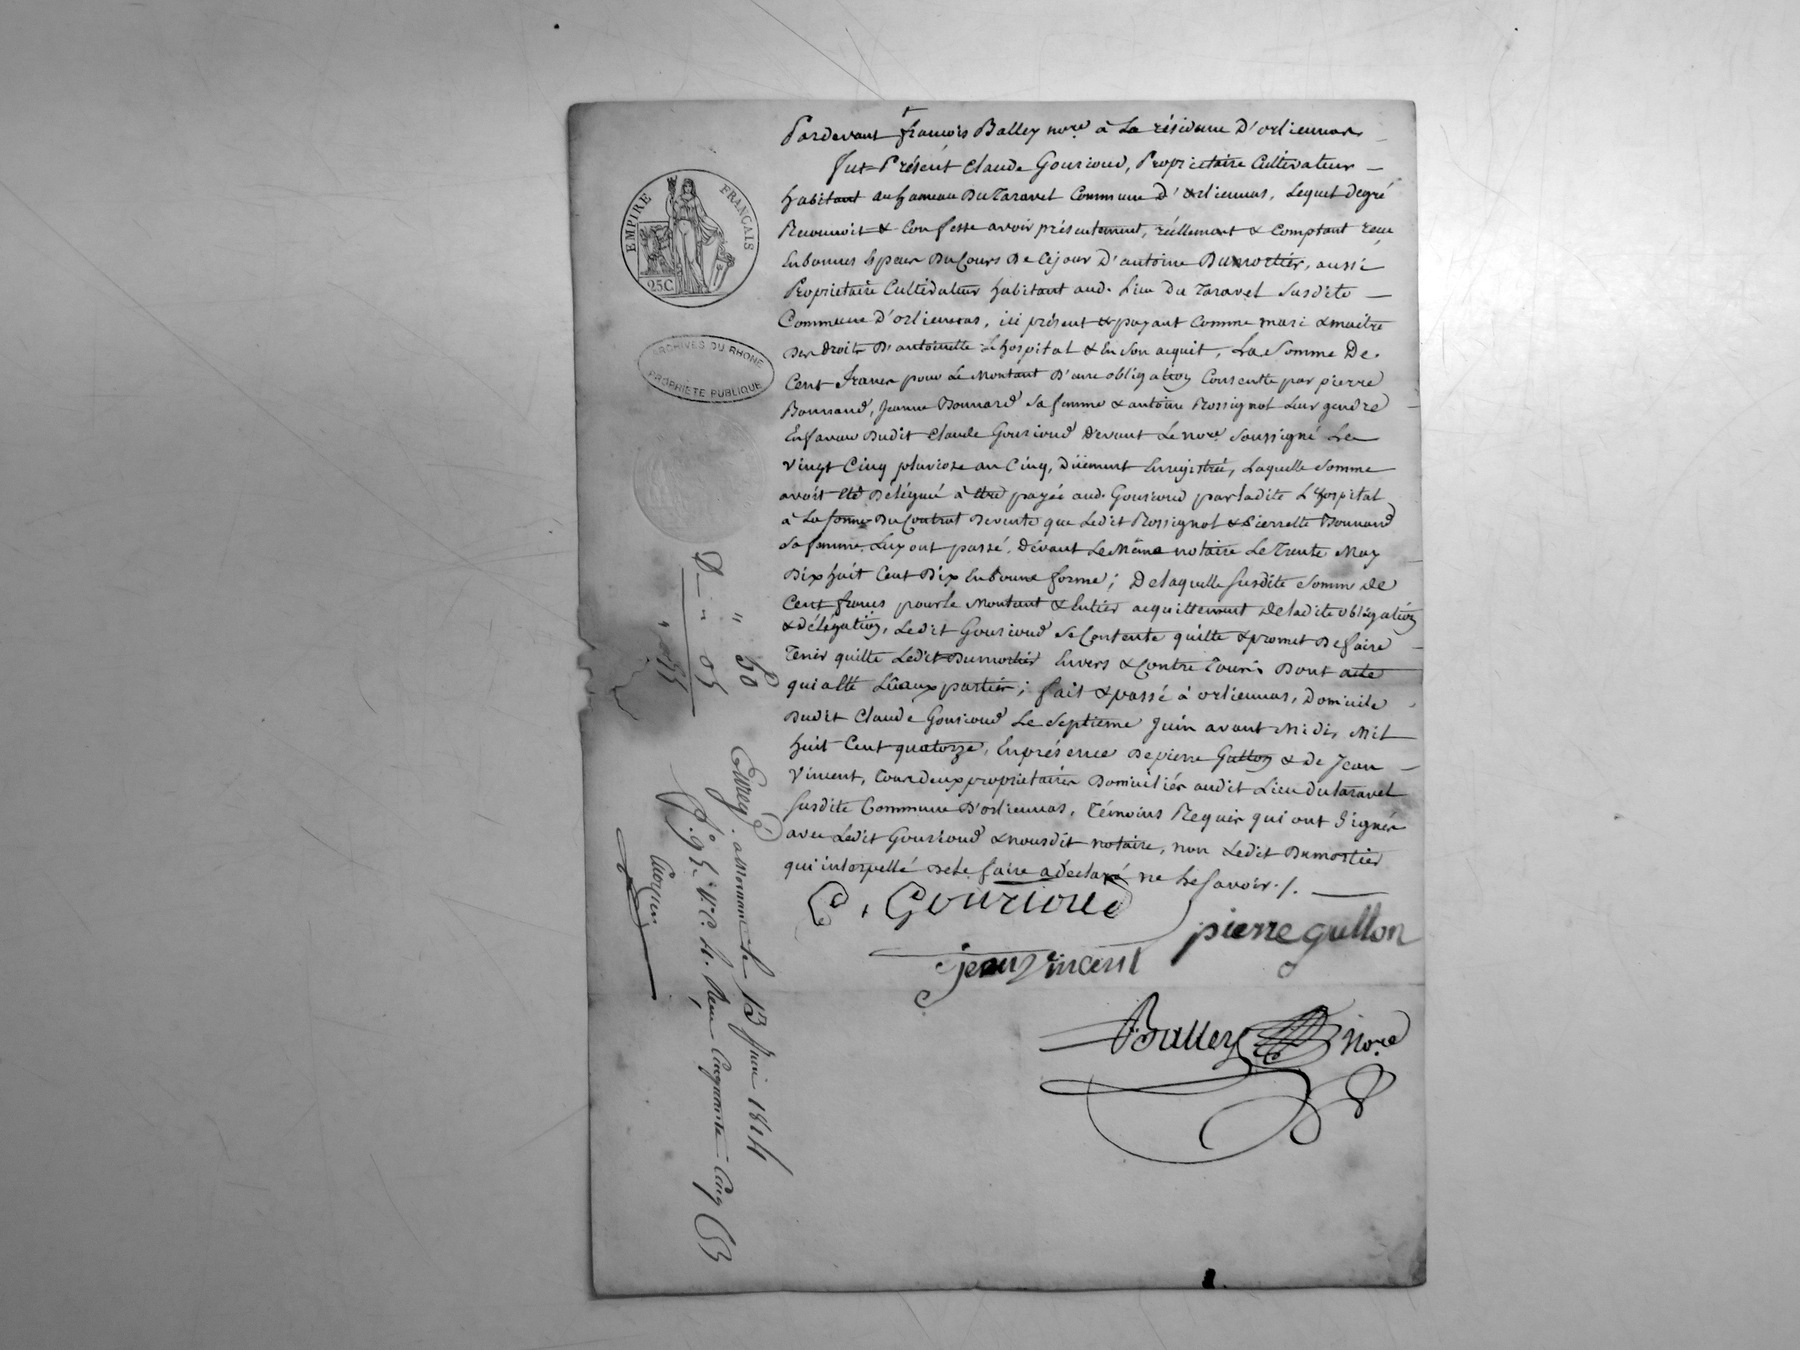 Pardevant françois Balley nore à la résidence d'orliennas
fut Présent claude Gourioud, Proprietaire Cultivateur
habitant au hameau du taravel Commune d'orliennas, lequel de gré
Reconnoit & Confesse avoir présentement, réellement & Comptant reçu
En bonnes Espèces du Cours de Ce jour d'antoine Dumortier, aussi
Proprietaire Cultivateur habitant aud. lieu du taravel susdite
Commune d'orliennas, ici présent & payant Comme mari & maitre
des droits d'antoinette L'hospital & En son acquit, la somme de
Cent francs pour le Montant d'une obligation Consentie par pierre
Bonnand, Jeanne Bonnard sa femme & antoine Rossignol leur gendre
En faveur dudit claude Gourioud devant le nore soussigné le
vingt Cinq pluviose an Cinq, düement Enregistrée, laquelle somme
avoit été déléguée à être payée aud. Gourioud par ladite L'hospital
à la forme du Contrat de vente que ledit Rossignol & pierrette Bonnand
sa femme luy ont passé, devant le Même notaire le trente May
dix huit Cent dix En bonne forme; de laquelle susdite somme de
Cent francs pour le Montant & Entier acquittement de ladite obligation
& délégation, ledit Gourioud se Contente quitte & promet de faire
tenir quitte ledit Dumortier Envers & Contre tous; dont acte
qui a été lû aux parties; fait & passé à orliennas, domicile
dudit claude Gourioud le septième juin avant Midi, Mil
huit Cent quatorze, En présence de pierre Gullon & de Jean
Vincent, tous deux proprietaires domiciliés audit lieu du taravel
susdite Commune d'orliennas, témoins Requis qui ont signés
avec ledit Gourioud & nousdit notaire, non ledit Dumortier
qui interpellé de le faire a déclaré ne le savoir ./.
C. Gourioud
pierre gullon
jean vincent
Balley Nore
EMPIRE FRANÇAIS
25C
ARCHIVES DU RHONE
PROPRIÉTÉ PUBLIQUE
D — " 50
" 05
" 55
Enregé. a Mornant le 13 Juin 1814
fo. 95. vo. C. 4. Reçu Cinquante-Cinq C